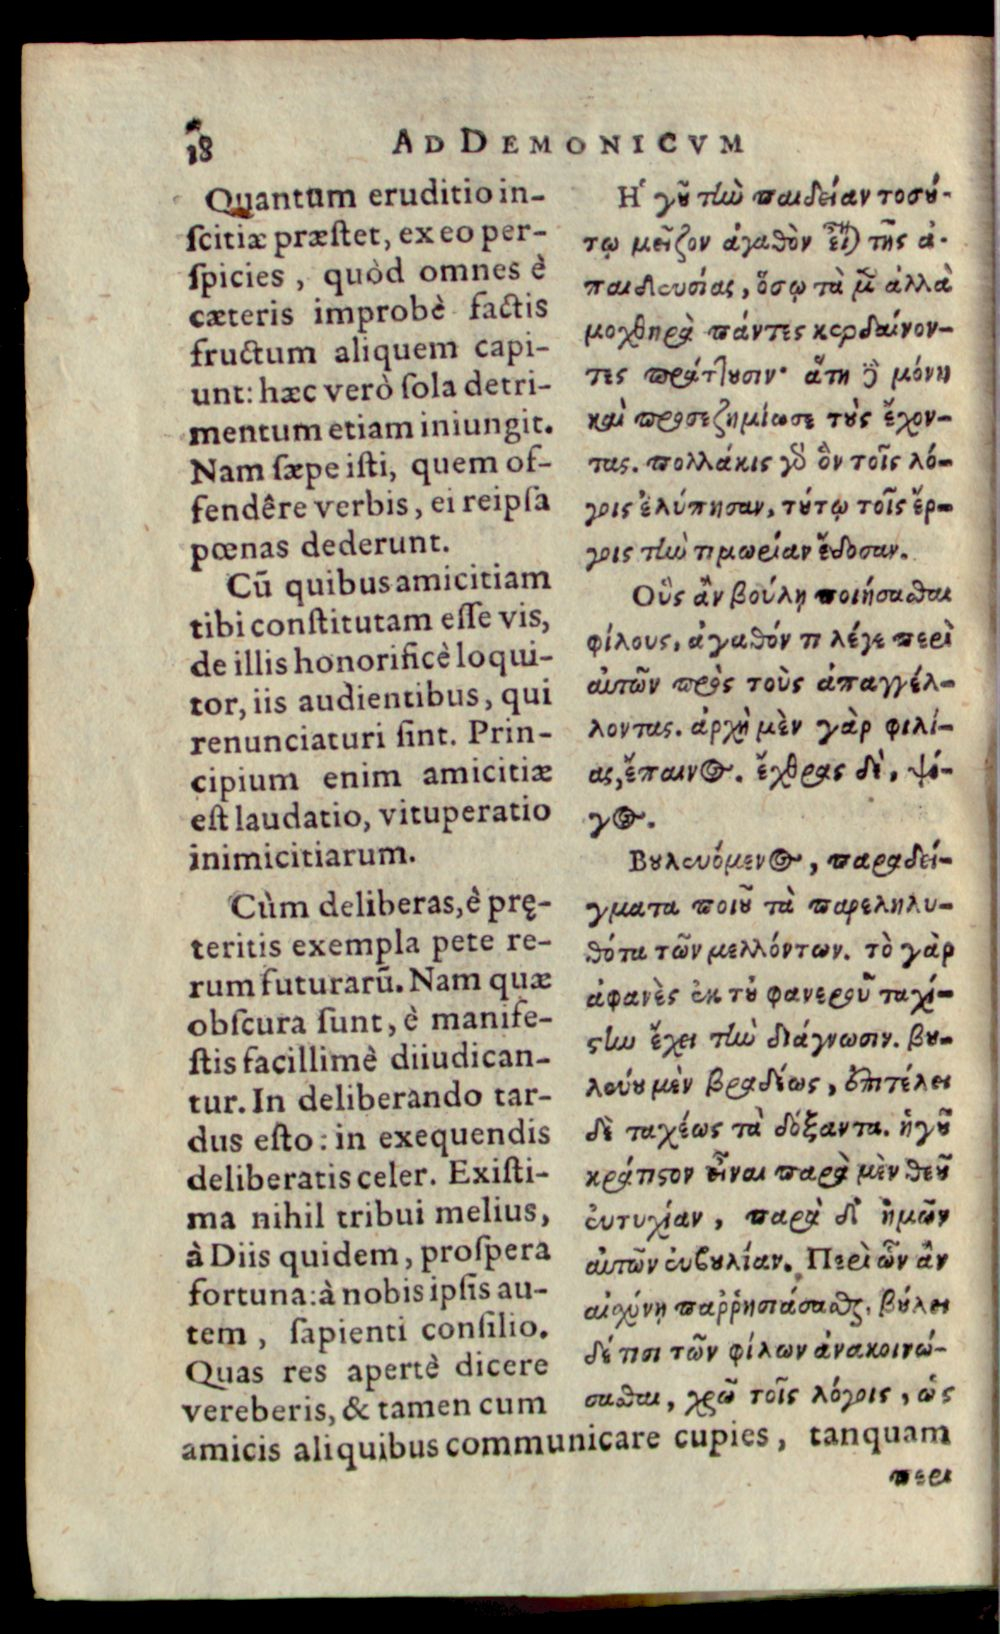 18
AD DEMONICVM
Quantum eruditio in-
ſcitiæ præſtet, ex eo per-
ſpicies, quòd omnes è
cæteris improbè factis
fructum aliquem capi-
unt: hæc verò ſola detri-
mentum etiam iniungit.
Nam ſæpe iſti, quem of-
fendêre verbis, ei reipſa
pœnas dederunt.
Cū quibus amicitiam
tibi conſtitutam eſſe vis,
de illis honorificè loqui-
tor, iis audientibus, qui
renunciaturi ſint. Prin-
cipium enim amicitiæ
eſt laudatio, vituperatio
inimicitiarum.
Cùm deliberas, è prę-
teritis exempla pete re-
rum futurarū. Nam quæ
obſcura ſunt, è manife-
ſtis facillimè diiudican-
tur. In deliberando tar-
dus eſto: in exequendis
deliberatis celer. Exiſti-
ma nihil tribui melius,
à Diis quidem, proſpera
fortuna: à nobis ipſis au-
tem, ſapienti conſilio.
Quas res apertè dicere
vereberis, & tamen cum
amicis aliquibus communicare cupies, tanquam
Ηʹ γοῦ τὴν παιδείαν τοσού-
τῳ μεῖζον ἀγαθὸν εἶναι τῆς ἀ-
παιδευσίας, ὅσῳ τὰ μὲν ἀλλὰ
μοχθηρὰ πάντες κερδαίνον-
τες πράττουσιν· αὕτη δὲ μόνη
καὶ προσεζημίωσε τοὺς ἔχον-
τας. πολλάκις γὰρ ὃν τοῖς λό-
γοις ἐλύπησαν, τούτῳ τοῖς ἔρ-
γοις τὴν τιμωρίαν ἔδοσαν.
Οὓς ἂν βούλῃ ποιήσασθαι
φίλους, ἀγαθόν τι λέγε περὶ
αὐτῶν πρὸς τοὺς ἀπαγγέλ-
λοντας. ἀρχὴ μὲν γὰρ φιλί-
ας, ἔπαινος. ἔχθρας δὲ, ψό-
γος.
Βουλευόμενος, παραδεί-
γματα ποιοῦ τὰ παρεληλυ-
θότα τῶν μελλόντων. τὸ γὰρ
ἀφανὲς ἐκ τοῦ φανεροῦ ταχί-
στην ἔχει τὴν διάγνωσιν. βου-
λεύου μὲν βραδέως, ἐπιτέλει
δὲ ταχέως τὰ δόξαντα. ἡγοῦ
κράτιστον εἶναι παρὰ μὲν θεοῦ
εὐτυχίαν, παρὰ δὲ ἡμῶν
αὐτῶν εὐβουλίαν. Περὶ ὧν ἂν
αἰσχύνῃ παῤῥησιάσασθαι, βούλει
δέ τισι τῶν φίλων ἀνακοινώ-
σασθαι, χρῶ τοῖς λόγοις, ὡς
περι